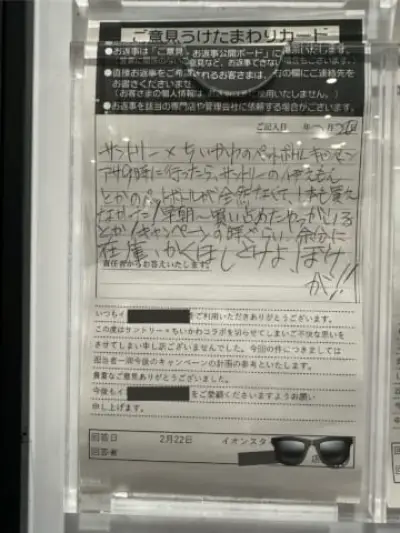 ご意見うけたまわりカード
●お返事は「ご意見、お返事公開ボード」に
意見など、お返事できない場合もございます。
●直接お返事をご希望されるお客さまは、右の欄にご連絡先を
お書きくださいませ
(お客さまの個人情報は、
●お返事を該当の専門店や管理会社に依頼する場合がございます。
ご記入日 年 月 日
サントリー×ちいかわのペットボトルキャンペーン
9時に行ったら、サントリーの伊えもん
とかのペットボトルが全然なくて、1本も買え
なかった!早朝〜買い占めたやつがいる
とか!キャンペーンの時ぐらい、余分に
在庫、かくほしとけよ、ぼけ
が!!
責任者からお答えいたします。
いつもイ をご利用いただきありがとうございます。
この度はサントリー×ちいかわコラボを切らせてしまいご不快な思いを
させてしまい申し訳ございませんでした。今回の件につきましては
担当者一同今後のキャンペーンの計画の参考といたします。
貴重なご意見ありがとうございました。
今後もイ をご愛顧くださいますようお願い
申し上げます。
回答日 2月22日 イオンスタ
回答者 店